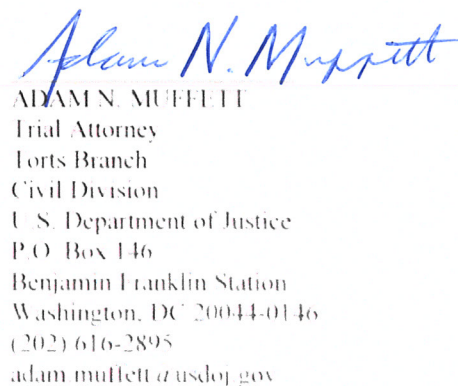 Adam N. Muffett
ADAM N. MUFFETT
Trial Attorney
Torts Branch
Civil Division
U.S. Department of Justice
P.O. Box 146
Benjamin Franklin Station
Washington, DC 20044-0146
(202) 616-2895
adam.muffett@usdoj.gov